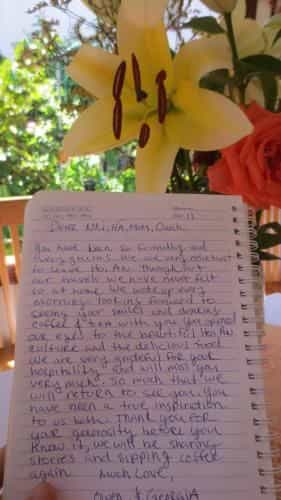 Dear Nhi, Ha, Mom, Oanh
You have been so friendly and
very giving. We are very reluctant
to leave Hoi An. Through out
our travels we have never felt
so at home. We wake up every
morning looking forward to
seeing your smiles and drinking
coffee & tea with you. You opened
our eyes to the beautiful Hoi An
culture and the delicious food.
We are very grateful for your
hospitality and will miss you
very much. So much that we
will return to see you. You
have been a true inspiration
to us both. Thank you for
your generosity before you
know it, we will be sharing
stories and sipping coffee
again.
Much Love,
Owen &